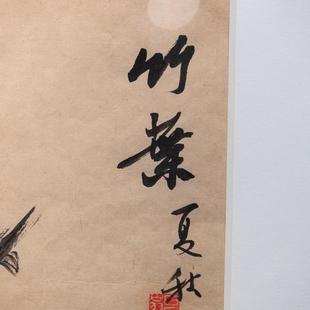 竹葉
夏秋